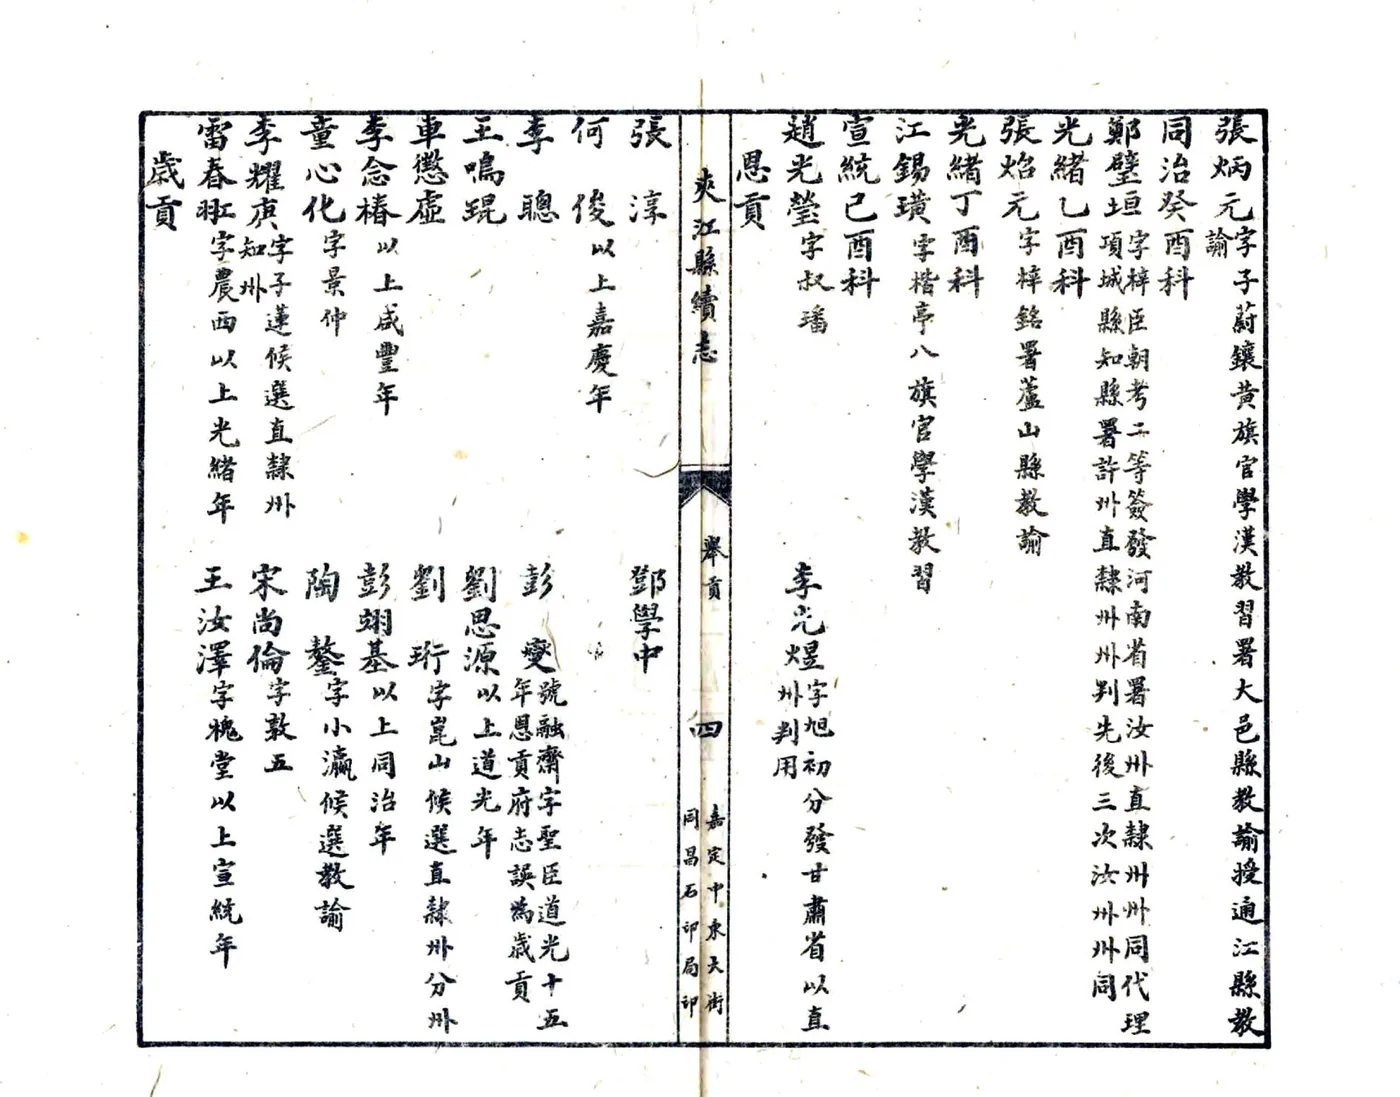 張炳元字子蔚鑲黃旗官學漢教習署大邑縣教諭授通江縣教
諭
同治癸酉科
鄭璧垣字梓臣朝考二等簽發河南省署汝州直隸州州同代理
項城縣知縣署許州直隸州州判先後三次汝州州同
光緒乙酉科
張炲元字梓銘署蘆山縣教諭
光緒丁酉科
江錫璜字楷亭八旗官學漢教習
宣統己酉科
趙光瑩字叔璠
李光煜字旭初分發甘肅省以直
州判用
恩貢
夾江縣續志
舉貢
四
嘉定中東大街
同昌石印局印
張淳
鄧學中
何俊以上嘉慶年
李聰
彭燮號融齋字聖臣道光十五
年恩貢府志誤為歲貢
王鳴琨
劉思源以上道光年
車懲虛
劉珩字崑山候選直隸州分州
李念椿以上咸豐年
彭翊基以上同治年
童心化字景仲
陶鏊字小瀛候選教諭
李耀庚字子蓮候選直隸州
知州
宋尚倫字敦五
雷春䎺字農西以上光緒年
王汝澤字槐堂以上宣統年
歲貢